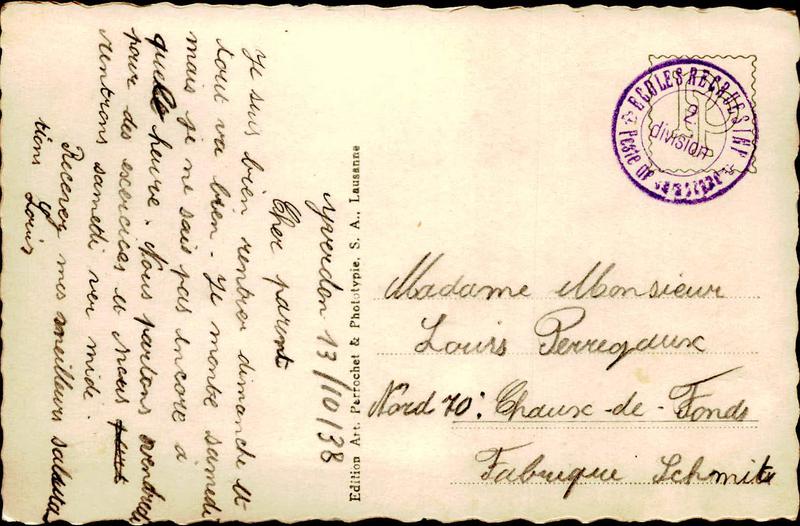 Yverdon 13/10/38
Cher parent
Je suis bien rentrer dimanche et
tout va bien. Je monte samedi
mais je ne sais pas encore à
quelle heure. Nous partons vendredi
pour des exercices et nous
rentrons samedi ver midi.
Recevez mes meilleurs saluta
tions
Louis
Edition Art. Perrochet & Phototypie, S. A., Lausanne
ECOLES RECRUES INF
2.
division
Poste de campagne
Madame Monsieur
Louis Perregaux
Nord 70: Chaux-de-Fonds
Fabrique Schmitz